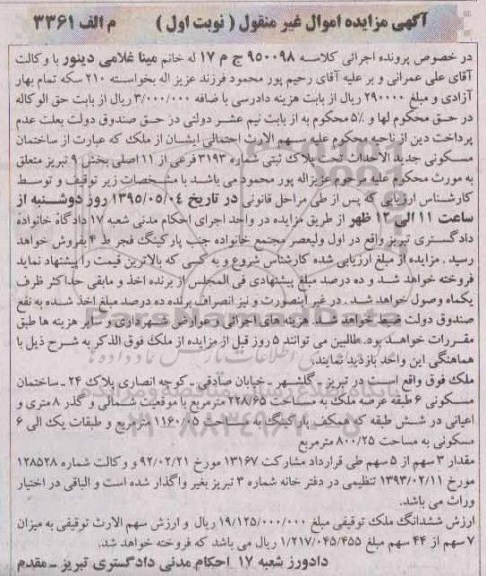 آگهی مزایده اموال غیر منقول ( نوبت اول )   م الف ۳۳۶۱
در خصوص پرونده اجرائی کلاسه ۹۵۰۰۹۸ ج م ۱۷ له خانم مینا غلامی دینور با وکالت
آقای علی عمرانی و بر علیه آقای رحیم پور محمود فرزند عزیز اله بخواسته ۲۱۰ سکه تمام بهار
آزادی و مبلغ ۲۹۰۰۰۰ ریال از بابت هزینه دادرسی با ضافه ۳/۰۰۰/۰۰۰ ریال از بابت حق الوکاله
در حق محکوم لها و ۵٪ محکوم به از بابت نیم عشر دولتی در حق صندوق دولت بعلت عدم
پرداخت دین از ناحیه محکوم علیه سهم الارث احتمالی ایشان از ملک که عبارت از ساختمان
مسکونی جدید الاحداث تحت پلاک ثبتی شماره ۳۱۹۳ فرعی از ۱۱ اصلی بخش ۹ تبریز متعلق
به مورث محکوم علیه مرحوم عزیزاله پور محمود می باشد با مشخصات زیر توقیف و توسط
کارشناس ارزیابی که پس از طی مراحل قانونی در تاریخ ۱۳۹۵/۰۵/۰۴ روز دوشنبه از
ساعت ۱۱ الی ۱۲ ظهر از طریق مزایده در واحد اجرای احکام مدنی شعبه ۱۷ دادگاه خانواده
دادگستری تبریز واقع در اول ولیعصر مجتمع خانواده جنب پارکینگ فجر ط ۴ بفروش خواهد
رسید . مزایده از مبلغ ارزیابی شده کارشناس شروع و به کسی که بالاترین قیمت را پیشنهاد نماید
فروخته خواهد شد و ده درصد مبلغ پیشنهادی فی المجلس از برنده اخذ و مابقی حداکثر ظرف
یکماه وصول خواهد شد . در غیر اینصورت و نیز انصراف برنده ده درصد مبلغ اخذ شده به نفع
صندوق دولت ضبط خواهد شد. هزینه های اجرائی و عوارض شهرداری و سایر هزینه ها طبق
مقررات خواهد بود. طالبین می توانند ۵ روز قبل از مزایده از ملک فوق الذکر به شرح ذیل با
هماهنگی این واحد بازدید نمایند.
ملک فوق واقع است در تبریز - گلشهر - خیابان صادقی - کوچه انصاری پلاک ۲۴ - ساختمان
مسکونی ۶ طبقه عرصه ملک به مساحت ۲۲۸/۶۵ مترمربع با موقعیت شمالی و گذر ۸ متری و
اعیانی در شش طبقه که همکف پارکینگ به مساحت ۱۱۶۰/۰۵ مترمربع و طبقات یک الی ۶
مسکونی به مساحت ۸۰۰/۲۵ مترمربع
مقدار ۳ سهم از ۵ سهم طی قرارداد مشارکت ۱۳۱۶۷ مورخ ۹۲/۰۲/۲۱ و وکالت شماره ۱۲۸۵۲۸
مورخ ۱۳۹۳/۰۲/۱۱ تنظیمی در دفتر خانه شماره ۳ تبریز بغیر واگذار شده است و الباقی در اختیار
وراث می باشد.
ارزش ششدانگ ملک توقیفی مبلغ ۱۹/۱۲۵/۰۰۰/۰۰۰ ریال و ارزش سهم الارث توقیفی به میزان
۷ سهم از ۴۴ سهم مبلغ ۱/۲۱۷/۰۴۵/۴۵۵ ریال می باشد که فروخته خواهد شد.
دادورز شعبه ۱۷ احکام مدنی دادگستری تبریز - مقدم